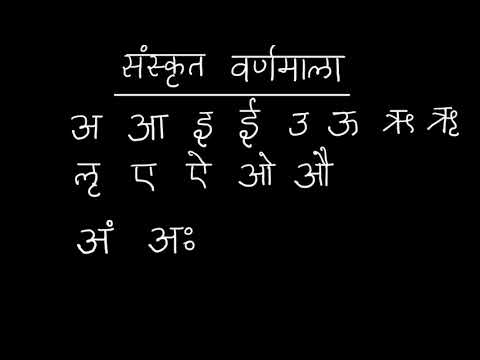 संस्कृत वर्णमाला
अ आ इ ई उ ऊ ऋ ॠ
लृ ए ऐ ओ औ
अं अः